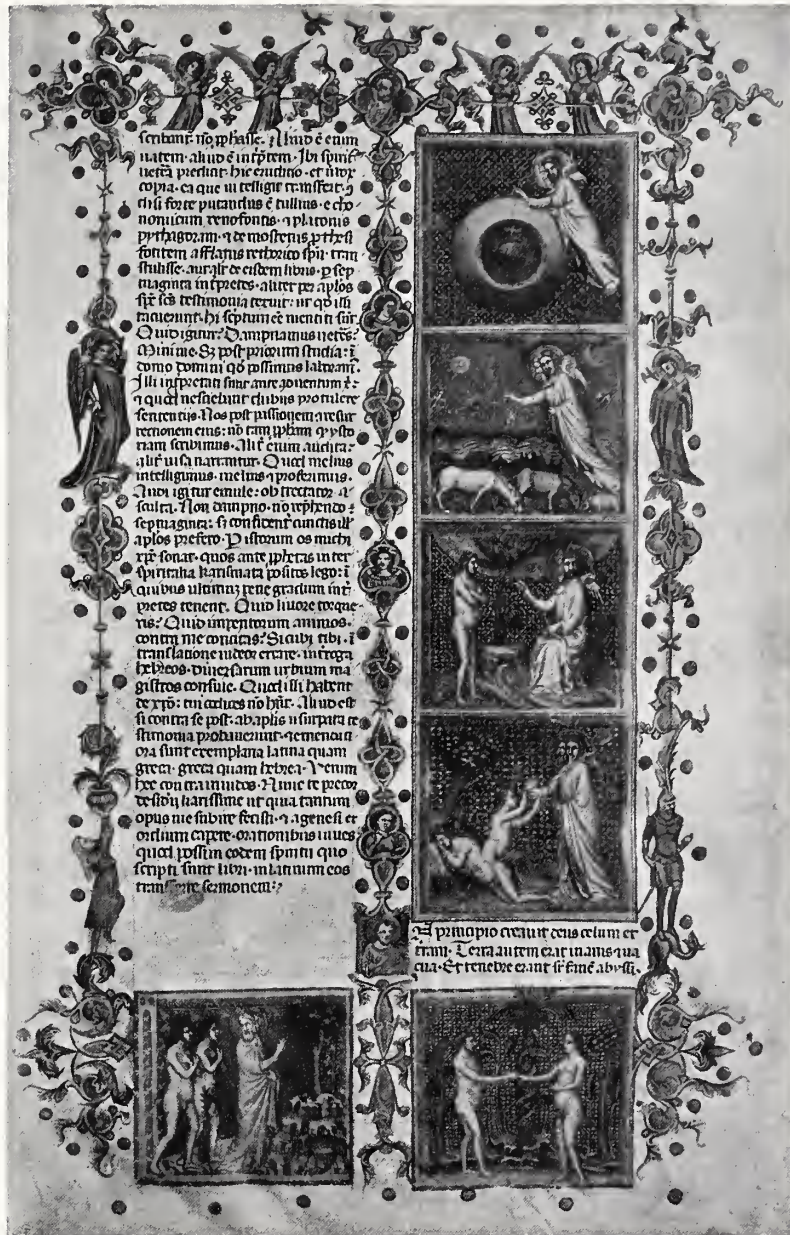 scribant· nō ꝓphasse. Aliud ē enim
uatem· aliud ē int̄ptem· Ibi spirit᷒
uerba predicit· hic eruditio· et
copia· ea que intelligit transfert·
si forte putandus ē tullius·
nonucum xenofontis· ⁊ platonis
pythagoram· ⁊ demostenis
afflatus rethorico spū· tran
stulisse· aut alit̄ de eisdem libris· ꝑ sep
tuaginta int̄pretes· aliter per aplos
sp̄c sc̄s testimonia texuit· ut qđ illi
tacuerunt· hi sc̄ptum eē mentiti sūt·
Quid igitur? Dampnamus ueteres?
Minime· Sꝫ post priorum studia· ī
domo domini qđ possumus laboram᷒·
Illi int̄pretati sunt ante aduentum
⁊ quod nesciebant dubiis protulere
sententiis· Nos post passionem ⁊ resur
rectionem eius· nō tam ꝓphiam qͣ ysto
riam scribimus· Alit̄ enim audita·
alit̄ uisa narrantur· Quod melius
intelligimus· melius ⁊ proferimus·
Audi igitur emule· obtrectator
sculta· Non dampno· nō rep̄hendo
septuaginta· si confident̄ cunctis ill᷒
aplos prefero· Per istorum os michi
xp̄c sonat· quos ante ꝓphetas inter
spiritalia karismata positos lego· ī
quibus ultimum pene gradum int̄
pretes tenent· Quid liuore torque
ris? Quid imperitorum animos·
contra me concitas? Sicubi tibi· ī
translatione uideor errare· interroga
hebreos· diuersarum urbium ma
gistros consule· Quod illi habent
de xp̄o· tui codices nō hn̄t· Aliud est
si contra se post· ab aplis usurpata te
stimonia probauerunt· ⁊ emendati
ora sunt exemplaria latina quam
greca· greca quam hebrea· Verum
hec contra inuidos· Nunc te precor
desideri karissime ut quia tantum
opus me subire fecisti· ⁊ a genesi ex
ordium capere· orationibus iuues·
quod possim eodem spiritu quo
scripti sunt libri· in latinum eos
transferre sermonem·
principio creauit deus celum et
terram· Terra autem erat inanis ⁊ ua
cua· Et tenebre erant sr̄ faciē abyssi·